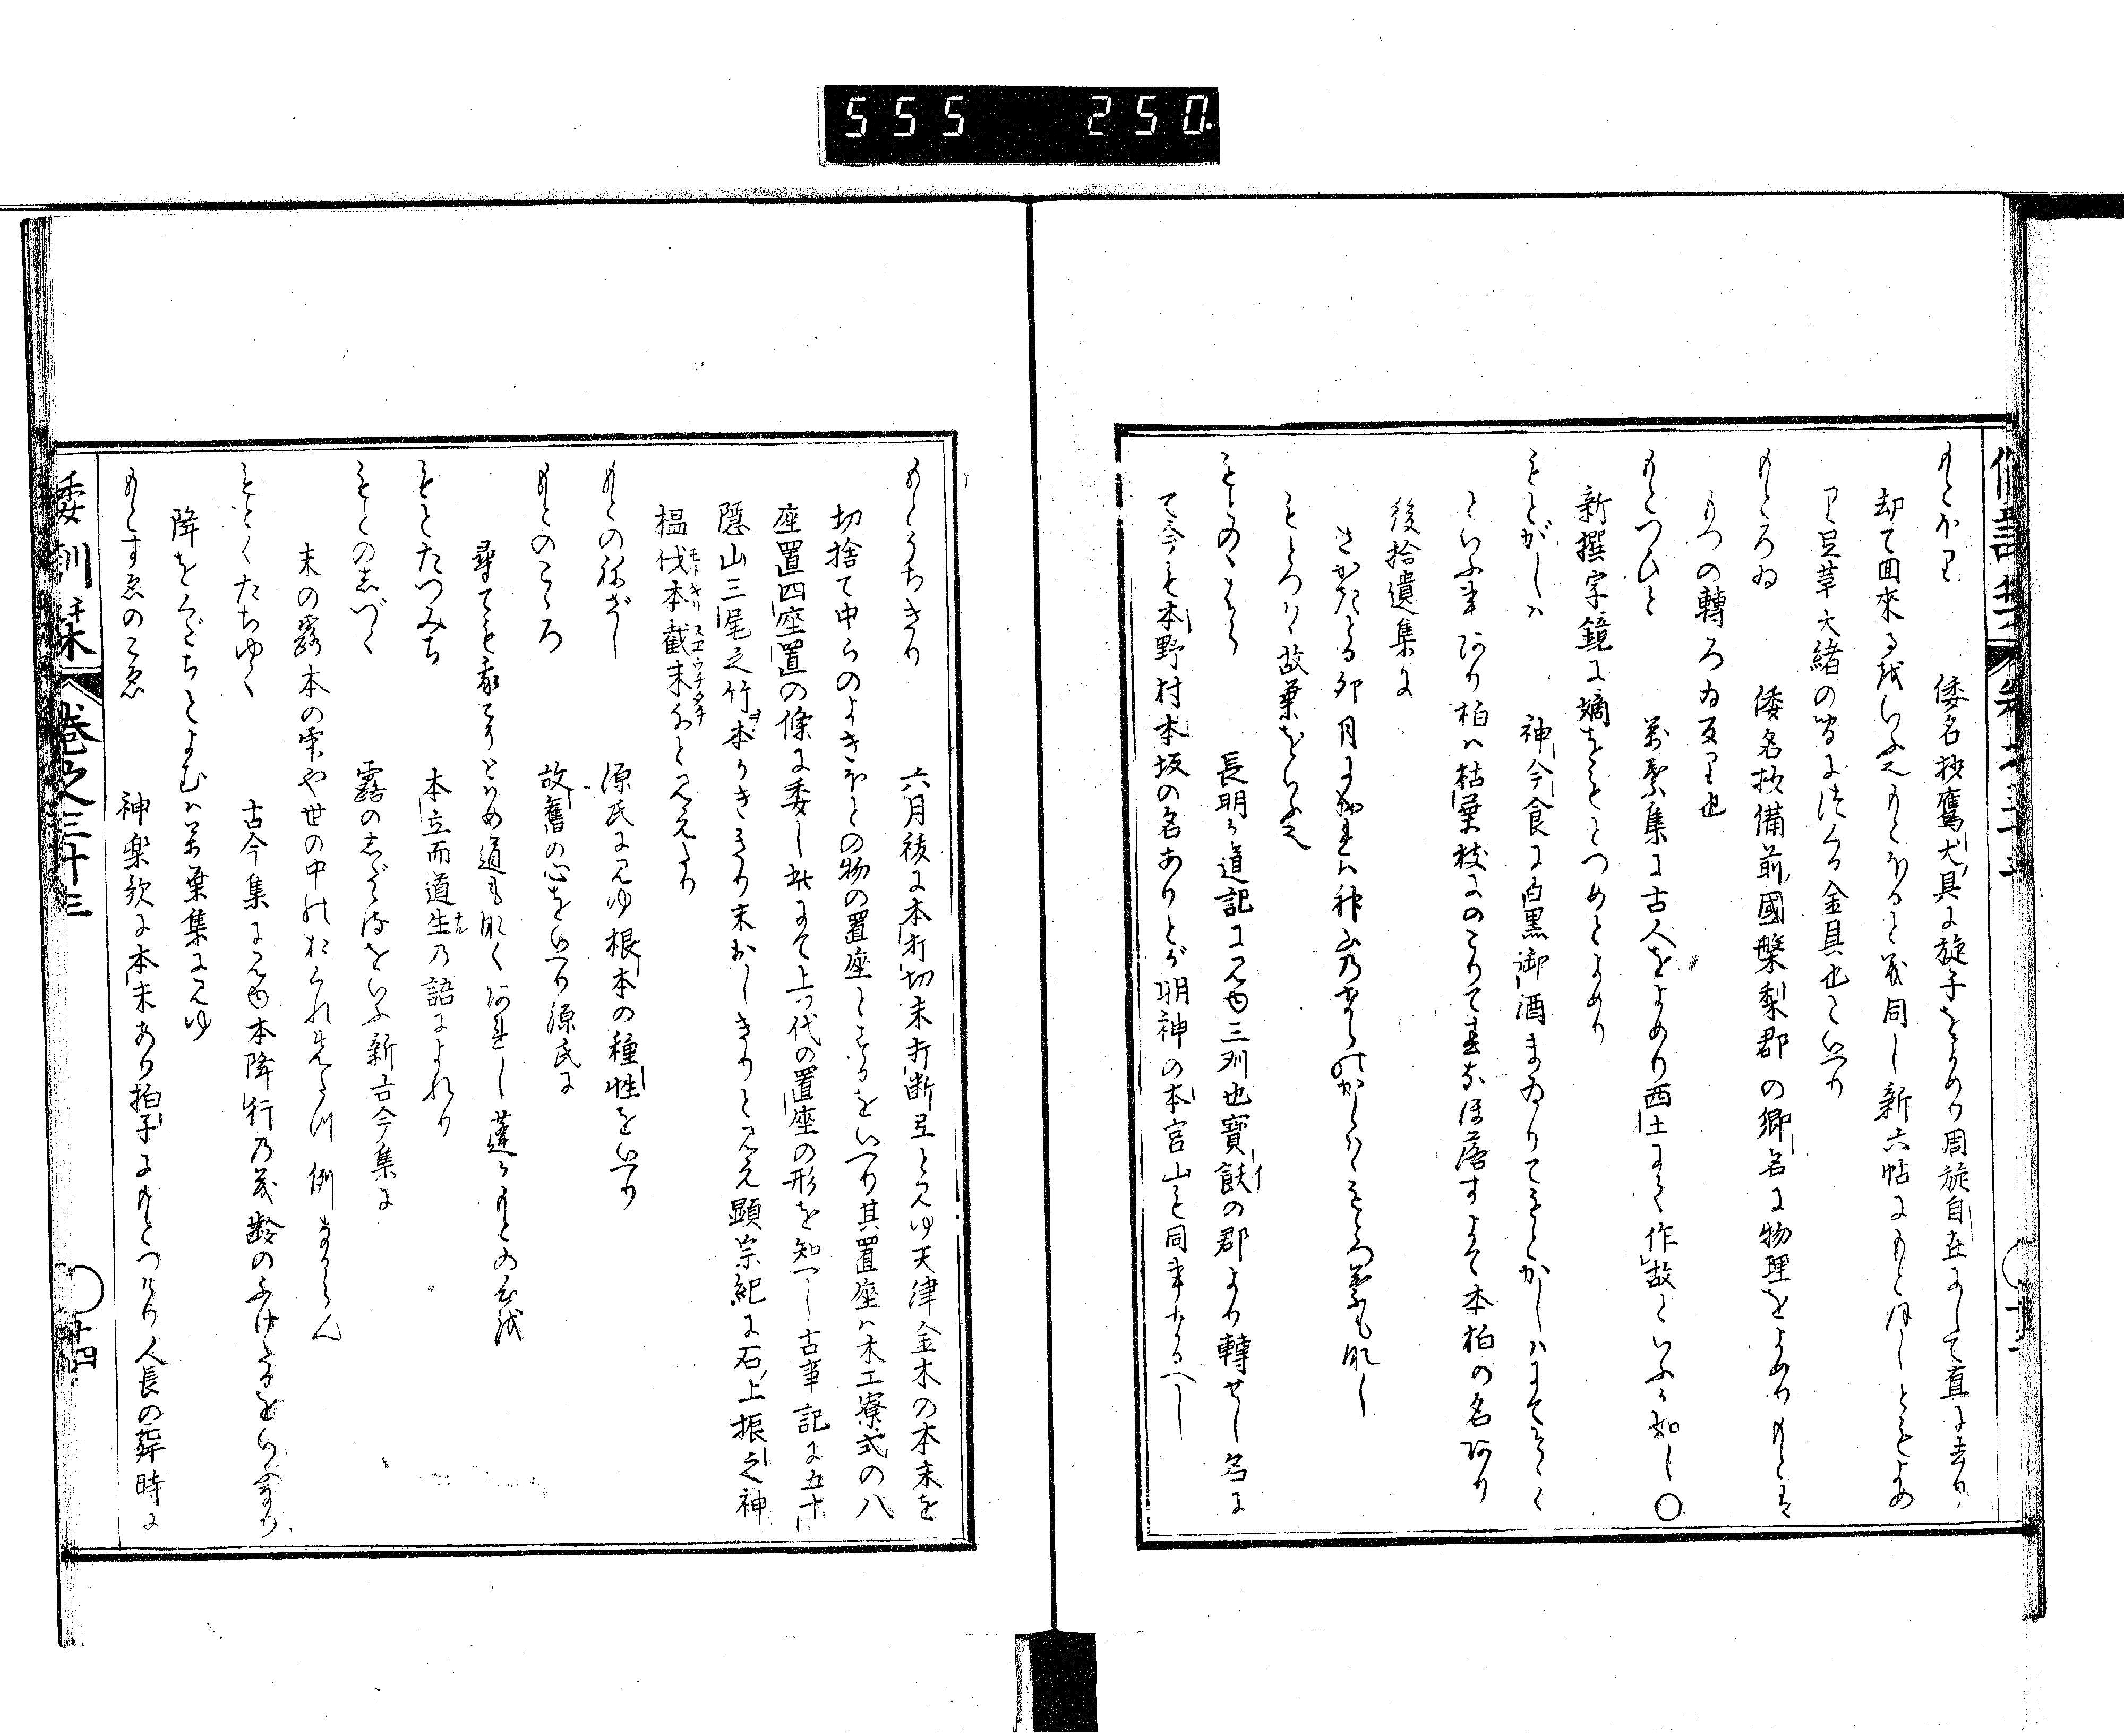 555 250.
もとほり 倭名抄鷹犬具に旋子をよめり周旋自在にして直に去り
却て回來る故いふ之もとほると義同し新六帖にもとほしともよめ
り足革大緒の間につくる金具也といへり
もとろゐ 倭名抄備前國磐梨郡の郷名に物理をよめりもとは
もつの轉ろゐ反り也
もとつひと 萬葉集に古人をよめり西土にて作故といふか如し〇
新撰字鏡に嫡をもとつめとよめり
もとがしハ 神今食に白黒御酒まゐりてもとかしハにてそゝく
といふ事あり柏ハ枯葉枝にのこりて春なほ落すよて本柏の名あり
後拾遺集に
さかきとる卯月になれハ神山のならのかしハゝもとつ葉もなし
もとつハゝ故葉をいふ之
もとのゝはら 長明か道記に見ゆ三州也寶飫の郡より轉せし名に
て今も本野村本坂の名ありとが明神の本宮山も同事なるへし
もとうちきり 六月祓に本打切末打断弖と見ゆ天津金木の本末を
切捨て中らのよきほとの物の置座とするをいへり其置座ハ木工寮式の八
座置四座置の條に委し是にて上つ代の置座の形を知へし古事記に五十
隱山三尾之竹本かきかり末おしきりと見え顯宗紀に石上振之神
榲伐本截末なと見えたり
もとのねざし 源氏に見ゆ根本の種性をいへり
もとのこゝろ 故舊の心をいへり源氏に
尋ても我こそとはめ道もなく深き蓬かもとの心を
もとたつみち 本立而道生の語によれり
もとのしづく 露のしづくをいふ新古今集に
末の露本の雫や世の中のおくれ先たつ例なるらん
もとくたちゆく 古今集に見ゆ本降行の義齢のふけたるをいふなり
降をくだちとよむハ萬葉集に見ゆ
もとすゑのこゑ 神楽歌に本末あり拍子にもとつけり人長の舞時に
倭訓栞 卷之三十三 十四